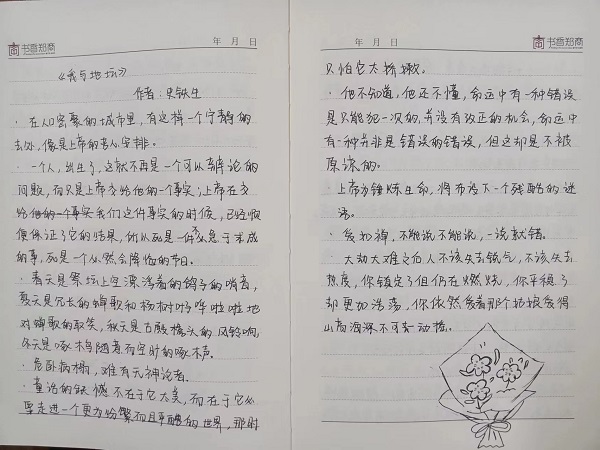 年 月 日
书香郑商
《我与地坛》
作者:史铁生
· 在人口密聚的城市里,有这样一个宁静的
去处,像是上帝的苦心安排。
· 一个人,出生了,这就不再是一个可以辩论的
问题,而只是上帝交给他的一个事实;上帝在交
给他的一个事实我们这件事实的时候,已经顺
便保证了它的结果,所以死是一件不必急于求成
的事,死是一个必然会降临的节日。
· 春天是祭坛上空漂浮着的鸽子的哨音,
夏天是冗长的蝉歌和杨树叶子哗啦啦地
对蝉歌的取笑,秋天是古殿檐头的风铃响,
冬天是啄木鸟随意而空旷的啄木声。
· 危卧病榻,难有无神论者。
· 童话的缺憾不在于它太美,而在于它必
要走进一个更为纷繁而且严酷的世界,那时
年 月 日
书香郑商
只怕它太娇嫩。
· 他不知道,他还不懂,命运中有一种错误
是只能犯一次的,并没有改正的机会,命运中
有一种并非是错误的错误,但这却是不被
原谅的。
· 上帝为锤炼生命,将布设下一个残酷的谜
语。
· 我扣禅,不能说不能说,一说就错。
· 大劫大难之后人不该失去锐气,不该失去
热度,你镇定了但仍在燃烧,你平稳了
却更加浩荡,你依然爱着那个姑娘爱得
山高海深不可去动摇。